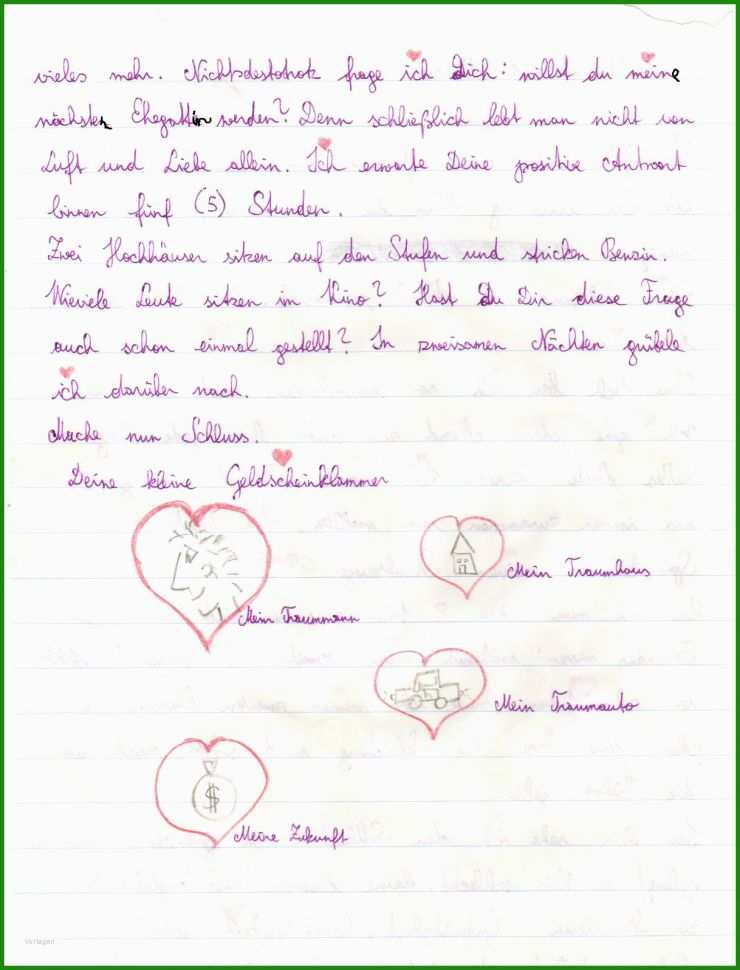 vieles mehr. Nichtsdestotrotz frage ich Dich: willst du meine
nächsten Ehegattin werden? Denn schließlich lebt man nicht von
Luft und Liebe allein. Ich erwarte Deine positive Antwort
binnen fünf (5) Stunden.
Zwei Hochhäuser sitzen auf den Stufen und stricken Benzin.
Wieviele Leute sitzen im Kino? Hast Du Dir diese Frage
auch schon einmal gestellt? In zweisamen Nächten grübele
ich darüber nach.
Mache nun Schluss.
Deine kleine Geldscheinklammer
Mein Traumhaus
Mein Traummann
Mein Traumauto
$
Meine Zukunft
Vorlagen